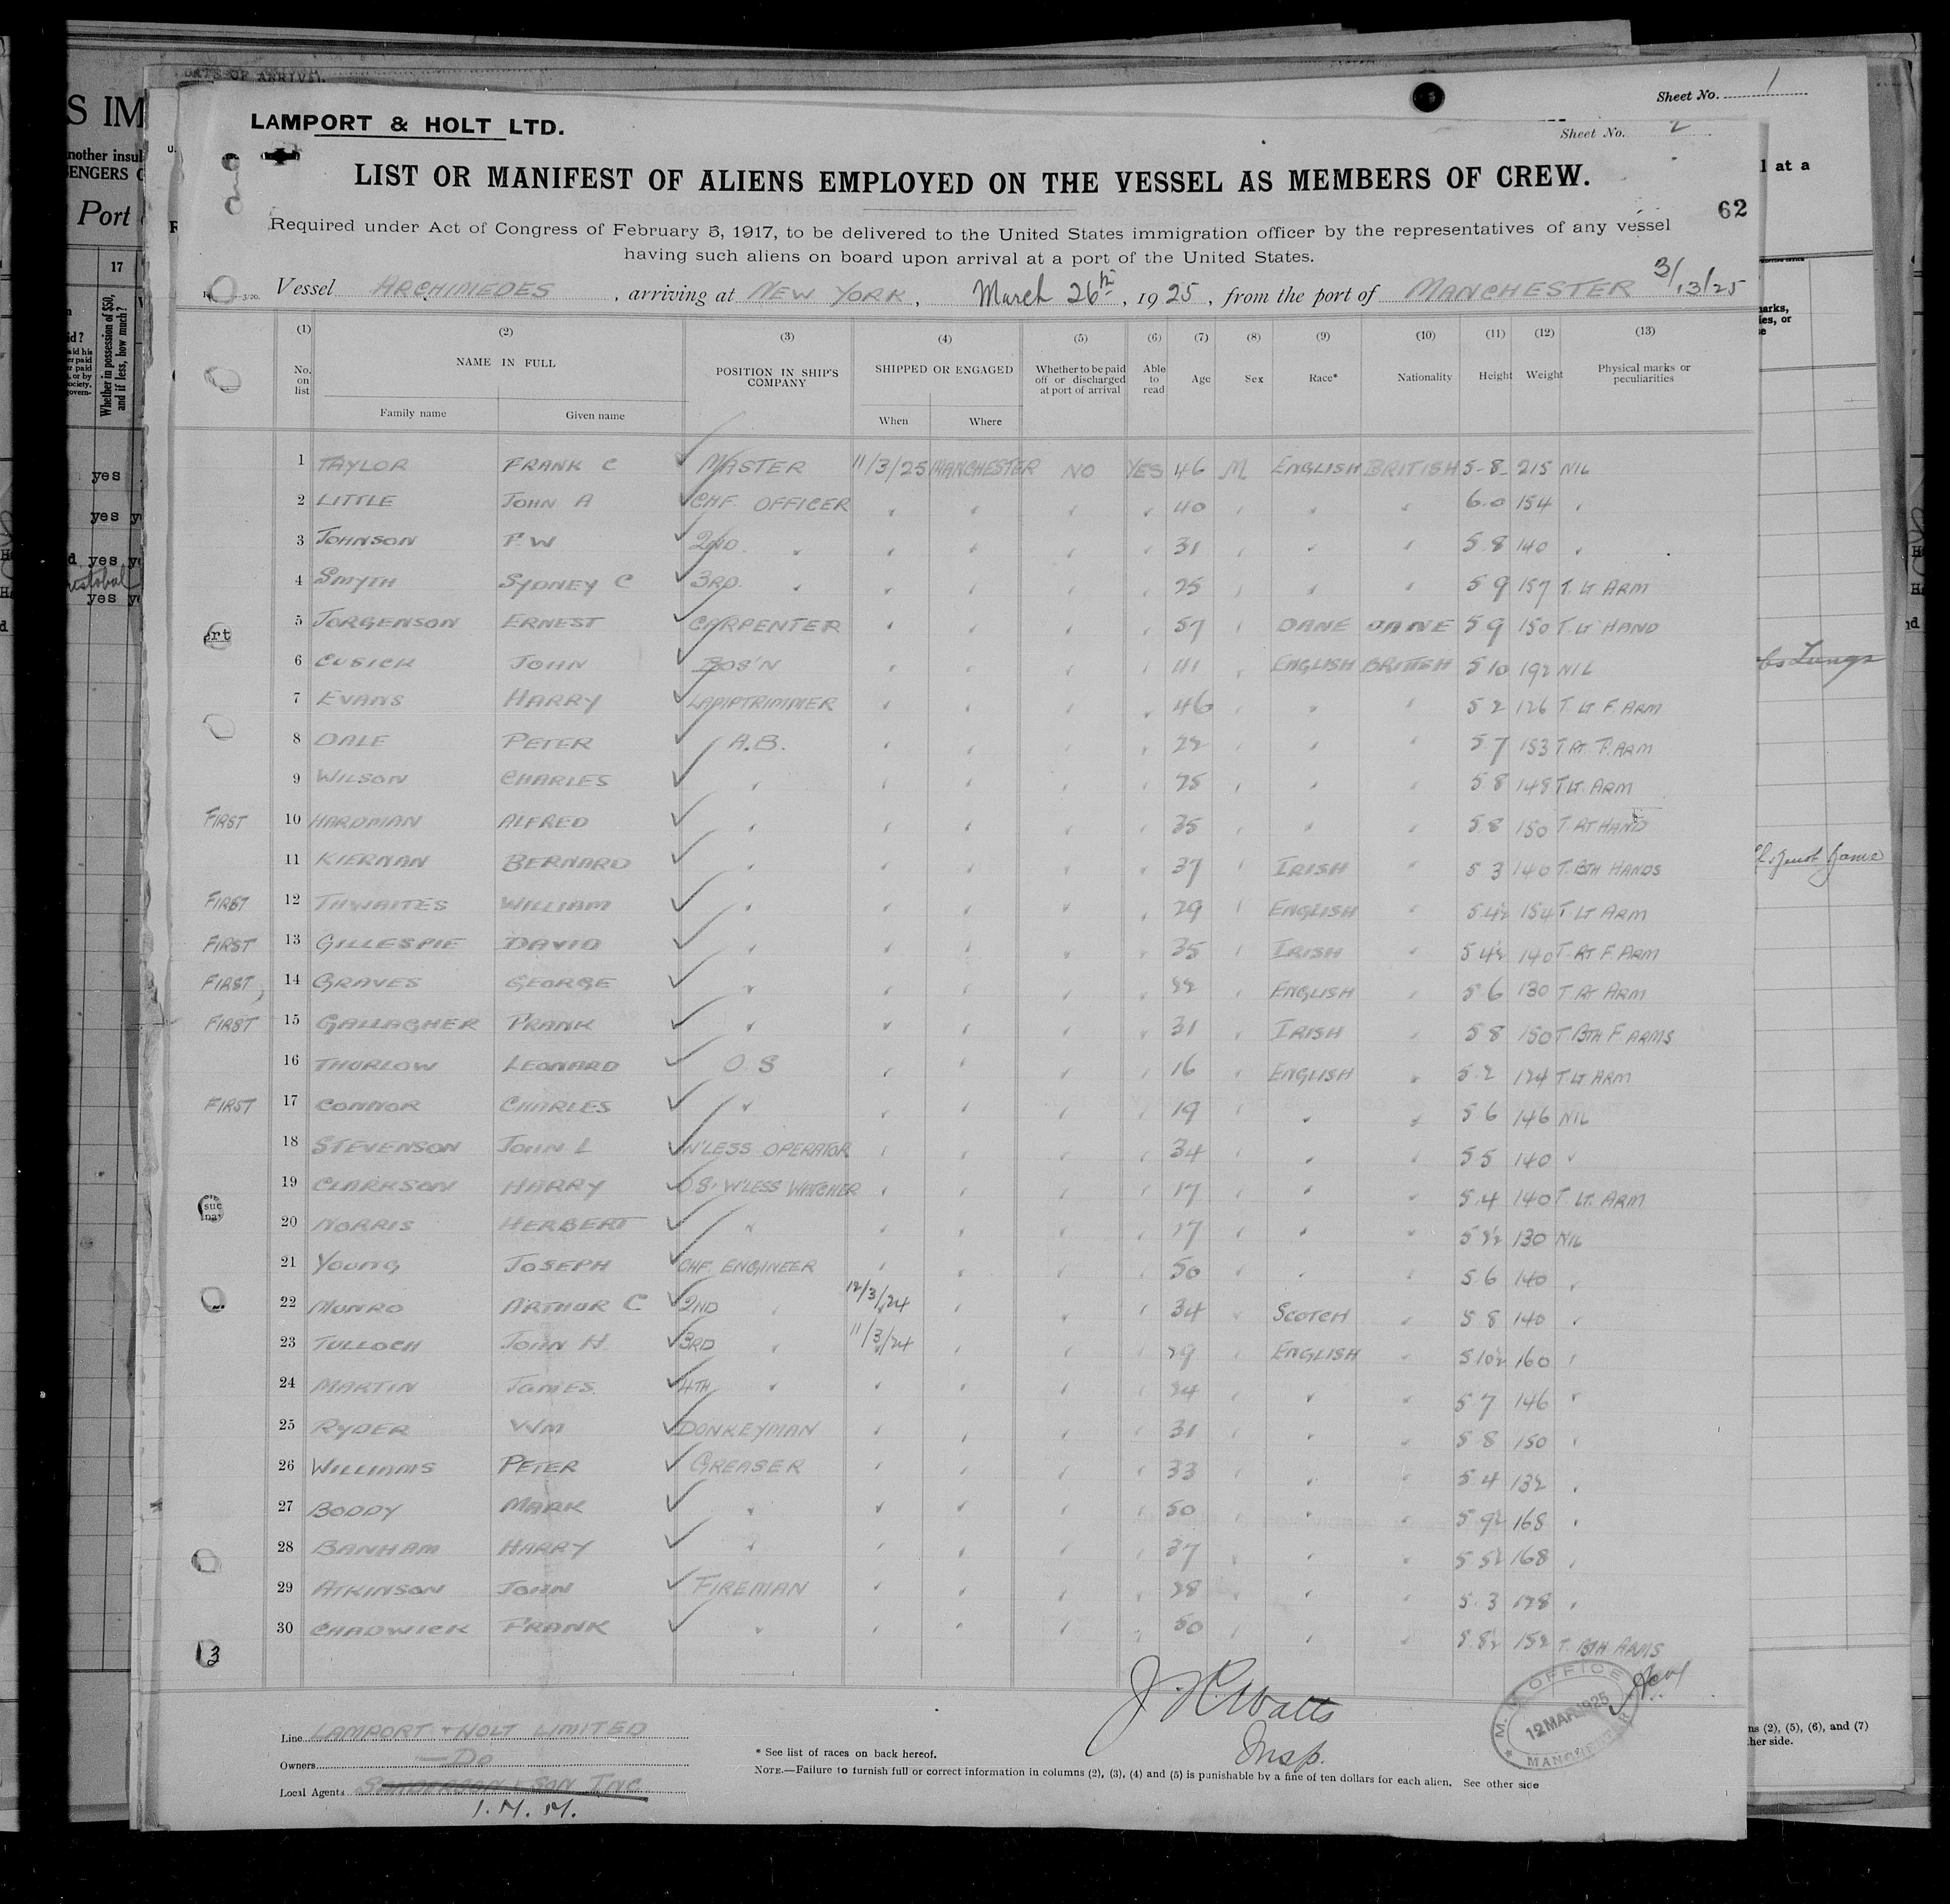 DATE OF ARRIVAL
Sheet No. 1
LAMPORT & HOLT LTD.
Sheet No. 2
LIST OR MANIFEST OF ALIENS EMPLOYED ON THE VESSEL AS MEMBERS OF CREW.
62
Required under Act of Congress of February 5, 1917, to be delivered to the United States immigration officer by the representatives of any vessel
having such aliens on board upon arrival at a port of the United States.
Vessel ARCHIMEDES, arriving at NEW YORK, March 26th, 1925, from the port of MANCHESTER 3/13/25
(1) (2) (3) (4) (5) (6) (7) (8) (9) (10) (11) (12) (13)
No. on list NAME IN FULL Family name Given name POSITION IN SHIP'S COMPANY SHIPPED OR ENGAGED When Where Whether to be paid off or discharged at port of arrival Able to read Age Sex Race* Nationality Height Weight Physical marks or peculiarities
1 TAYLOR FRANK C MASTER 11/3/25 MANCHESTER NO YES 46 M ENGLISH BRITISH 5-8 215 NIL
2 LITTLE JOHN A CHF. OFFICER 40 6.0 154
3 JOHNSON 2ND 31 5 8 140
4 SMYTH SYDNEY C 3RD 25 5 9 157 T. LT ARM
5 JORGENSON ERNEST CARPENTER 57 DANE DANE 5 9 150 T. LT HAND
6 CUSICK JOHN BOS'N 41 ENGLISH BRITISH 5 10 192 NIL
7 EVANS HARRY LAMPTRIMMER 46 5 2 126 T. LT F. ARM
8 DALE PETER A.B. 22 5 7 153 T. RT. F. ARM
9 WILSON CHARLES 25 5 8 148 T LT. ARM
FIRST 10 HARDMAN ALFRED 35 5 8 150 T. RT HAND
11 KIERNAN BERNARD 37 IRISH 5 3 140 T. BTH HANDS
FIRST 12 THWAITES WILLIAM 29 ENGLISH 5 4½ 154 T. LT ARM
FIRST 13 GILLESPIE DAVID 35 IRISH 5 4½ 140 T. RT F. ARM
FIRST 14 GRAVES GEORGE 22 ENGLISH 5 6 130 T RT ARM
FIRST 15 GALLAGHER FRANK 31 IRISH 5 8 150 T BTH F. ARMS
16 THURLOW LEONARD O. S 16 ENGLISH 5 2 124 T LT ARM
FIRST 17 CONNOR CHARLES 19 5 6 146 NIL
18 STEVENSON JOHN L W'LESS OPERATOR 34 5 5 140
19 CLARKSON HARRY O.S. W'LESS WATCHER 17 5.4 140 T. LT. ARM
20 NORRIS HERBERT 17 130 NIL
21 YOUNG JOSEPH CHF. ENGINEER 50 5 6 140
22 MUNRO ARTHUR C 2ND 12/3/24 34 SCOTCH 5 8 140
23 TULLOCH JOHN H 3RD 11/3/24 29 ENGLISH 5 10½ 160
24 MARTIN JAMES 4TH 24 5 7 146
25 RYDER WM DONKEYMAN 31 5 8 150
26 WILLIAMS PETER GREASER 33 5 4 132
27 BODDY MARK 50 5 9½ 168
28 BANHAM HARRY 37 5 5½ 168
29 ATKINSON JOHN FIREMAN 28 5 3 128
30 CHADWICK FRANK 50 5 8½ 152 T. BTH ARMS
Line LAMPORT & HOLT LIMITED
Owners — Do
Local Agents SANDERSON & SON INC
I. M. M.
J. R. Watts
Insp.
M. M. OFFICE
12 MAR 1925
MANCHESTER
* See list of races on back hereof.
NOTE.—Failure to furnish full or correct information in columns (2), (3), (4) and (5) is punishable by a fine of ten dollars for each alien. See other side